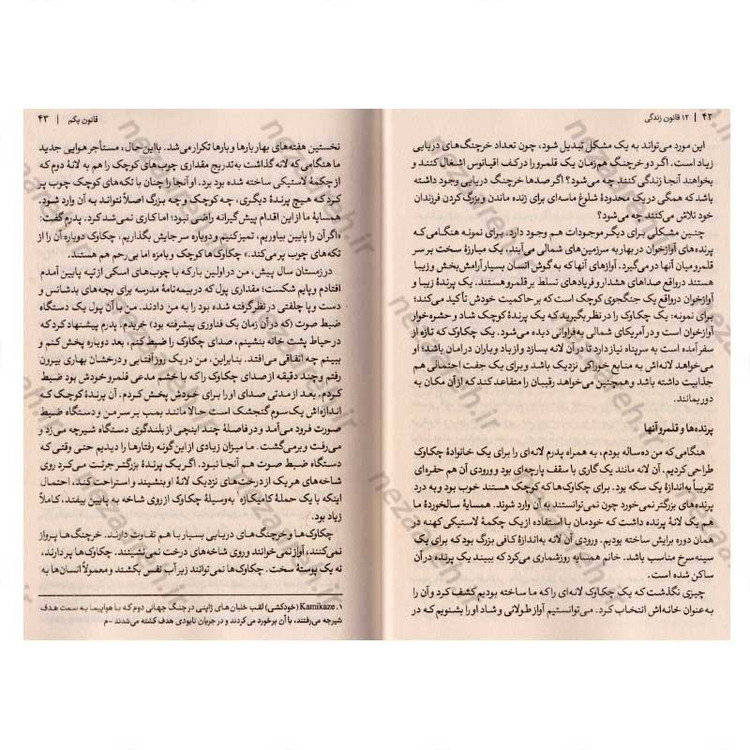 ۴۲ | ۱۲ قانون زندگی
این مورد می‌تواند به یک مشکل تبدیل شود، چون تعداد خرچنگ‌های دریایی
زیاد است. اگر دو خرچنگ هم‌زمان یک قلمرو را در کف اقیانوس اشغال کنند و
بخواهند آنجا زندگی کنند چه می‌شود؟ اگر صدها خرچنگ دریایی وجود داشته
باشد که همگی در یک محدودهٔ شلوغ ماسه‌ای برای زنده ماندن و بزرگ کردن فرزندان
خود تلاش می‌کنند چه می‌شود؟
چنین مشکلی برای دیگر موجودات هم وجود دارد. برای نمونه هنگامی‌که
پرنده‌های آوازخوان در بهار به سرزمین‌های شمالی می‌آیند، یک مبارزهٔ سخت بر سر
قلمرو میان آنها در می‌گیرد. آوازهای آنها که به گوش انسان بسیار آرامش‌بخش و زیبا
هستند در واقع صداهای هشدار و فریادهای تسلط بر قلمرو هستند. یک پرندهٔ زیبا و
آوازخوان در واقع یک جنگجوی کوچک است که بر حاکمیت خودش تأکید می‌کند؛
برای نمونه: یک چکاوک را در نظر بگیرید که یک پرندهٔ کوچک شاد و حشره‌خوار
آوازخوان است و در آمریکای شمالی به‌فراوانی دیده می‌شود. یک چکاوک که تازه از
سفر آمده است به سرپناه نیاز دارد تا در آن لانه بسازد و از باد و باران در امان باشد؛ او
می‌خواهد لانه‌اش به منابع خوراکی نزدیک باشد و برای یک جفت احتمالی هم
جذابیت داشته باشد و همچنین می‌خواهد رقیبان را متقاعد کند که از آن مکان به
دور بمانند.
پرنده‌ها و قلمرو آنها
هنگامی‌که من ده‌ساله بودم، به همراه پدرم لانه‌ای را برای یک خانوادهٔ چکاوک
طراحی کردیم. آن لانه مانند یک گاری با سقف پارچه‌ای بود و ورودی آن هم حفره‌ای
تقریباً به اندازهٔ یک سکه بود. برای چکاوک‌ها که کوچک هستند خوب بود و به درد
پرنده‌های بزرگتر نمی‌خورد چون نمی‌توانستند به آن وارد شوند. همسایهٔ سالخوردهٔ ما
هم یک لانهٔ پرنده داشت که خودمان با استفاده از یک چکمهٔ لاستیکی کهنه در
همان دوره برایش ساخته بودیم. ورودی آن لانه به‌اندازهٔ کافی بزرگ بود که برای یک
سینه‌سرخ مناسب باشد. خانم همسایه روزشماری می‌کرد که ببیند یک پرنده در آن
ساکن شده است.
چیزی نگذشت که یک چکاوک لانه‌ای را که ما ساخته بودیم کشف کرد و آن را
به عنوان خانه‌اش انتخاب کرد. می‌توانستیم آواز طولانی و شاد او را بشنویم که در
قانون یکم | ۴۳
نخستین هفته‌های بهار بارها و بارها تکرار می‌شد. بااین‌حال، مستأجر هوایی جدید
ما هنگامی که لانه گذاشت به‌تدریج مقداری چوب‌های کوچک را هم به لانهٔ دوم که
از چکمهٔ لاستیکی ساخته شده بود برد. او آنجا را چنان با تکه‌های کوچک چوب پر
کرد که هیچ پرندهٔ دیگری، چه کوچک و چه بزرگ اصلاً نتواند به آن وارد شود.
همسایهٔ ما از این اقدام پیش‌گیرانه راضی نبود؛ اما کاری نمی‌شد کرد. پدرم گفت:
«اگر آن را پایین بیاوریم، تمیز کنیم و دوباره سر جایش بگذاریم، چکاوک دوباره آن را از
تکه‌های چوب پر می‌کند.» چکاوک‌ها کوچک و بامزه اما بی‌رحم هم هستند.
در زمستان سال پیش، من در اولین بار که با چوب‌های اسکی از تپه پایین آمدم
افتادم و پایم شکست؛ مقداری پول که در بیمه‌نامهٔ مدرسه برای بچه‌های بدشانس و
دست و پا چلفتی در نظر گرفته شده بود را به من دادند. من با آن پول یک دستگاه
ضبط صوت (که در آن زمان یک فناوری پیشرفته بود) خریدم. پدرم پیشنهاد کرد که
در حیاط پشت خانه بنشینم، صدای چکاوک را ضبط کنم، بعد دوباره پخش کنم و
ببینم چه اتفاقی می‌افتد. بنابراین، من در یک روز آفتابی و درخشان بهاری بیرون
رفتم و چند دقیقه از صدای چکاوک را که با خشم مدعی قلمرو خودش بود ضبط
کردم. بعد از مدتی صدای او را برای خودش پخش کردم. آن پرندهٔ کوچک که
اندازه‌اش یک سوم گنجشک است حالا مانند بمب بر سر من و دستگاه ضبط
صورت فرود می‌آمد و در فاصلهٔ چند اینچی از بلندگوی دستگاه شیرجه می‌زد و
می‌رفت و برمی‌گشت. ما میزان زیادی از این‌گونه رفتارها را دیدیم حتی وقتی که
دستگاه ضبط صوت هم آنجا نبود. اگر یک پرندهٔ بزرگتر جرئت می‌کرد روی
شاخه‌های هر یک از درخت‌های نزدیک لانهٔ او بنشیند و استراحت کند، احتمال
اینکه با یک حملهٔ کامیکازه۱ به‌وسیلهٔ چکاوک از روی شاخه به پایین بیفتد، کاملاً
زیاد بود.
چکاوک‌ها و خرچنگ‌های دریایی بسیار با هم تفاوت دارند. خرچنگ‌ها پرواز
نمی‌کنند، آواز نمی‌خوانند و روی شاخه‌های درخت نمی‌نشینند. چکاوک‌ها پر دارند،
نه یک پوستهٔ سخت. چکاوک‌ها نمی‌توانند زیر آب نفس بکشند و معمولاً انسان‌ها به
۱. Kamikaze (خودکشی) لقب خلبان های ژاپنی در جنگ جهانی دوم که با هواپیما به سمت هدف
شیرجه می‌رفتند، با آن برخورد می‌کردند و در جریان نابودی هدف کشته می‌شدند -م
nezamreh.ir